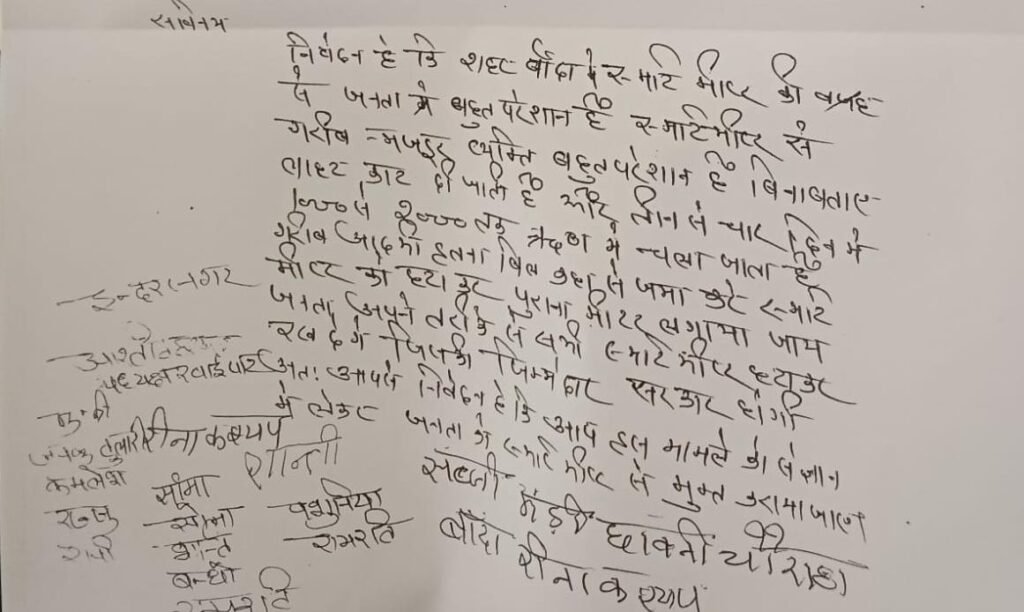 सविनय
निवेदन है कि शहर बाँदा मे स्मार्ट मीटर की वजह
से जनता मे बहुत परेशान है स्मार्ट मीटर से
गरीब मजदूर व्यक्ति बहुत परेशान है बिना बताए
लाइट काट दी जाती है और तीन से चार दिन मे
1000 से 2000 तक ऋण मे चला जाता है
गरीब आदमी इतना बिल कहा से जमा करे स्मार्ट
मीटर को हटा कर पुराना मीटर लगाया जाय
जनता अपने तरीके से सभी स्मार्ट मीटर हटाकर
रख देगे जिसकी जिम्मेदार सरकार होगी
अतः आपसे निवेदन है कि आप इस मामले को संज्ञान
मे लेकर जनता को स्मार्ट मीटर से मुक्त कराया जाए
सब्जी मंडी छावनी चौराहा
बाँदा रीना कश्यप
इन्दरानगर
रीना कश्यप
शान्ती
कमलेश
सीमा
रज्जू
शान्ति
रामरति
बन्धी